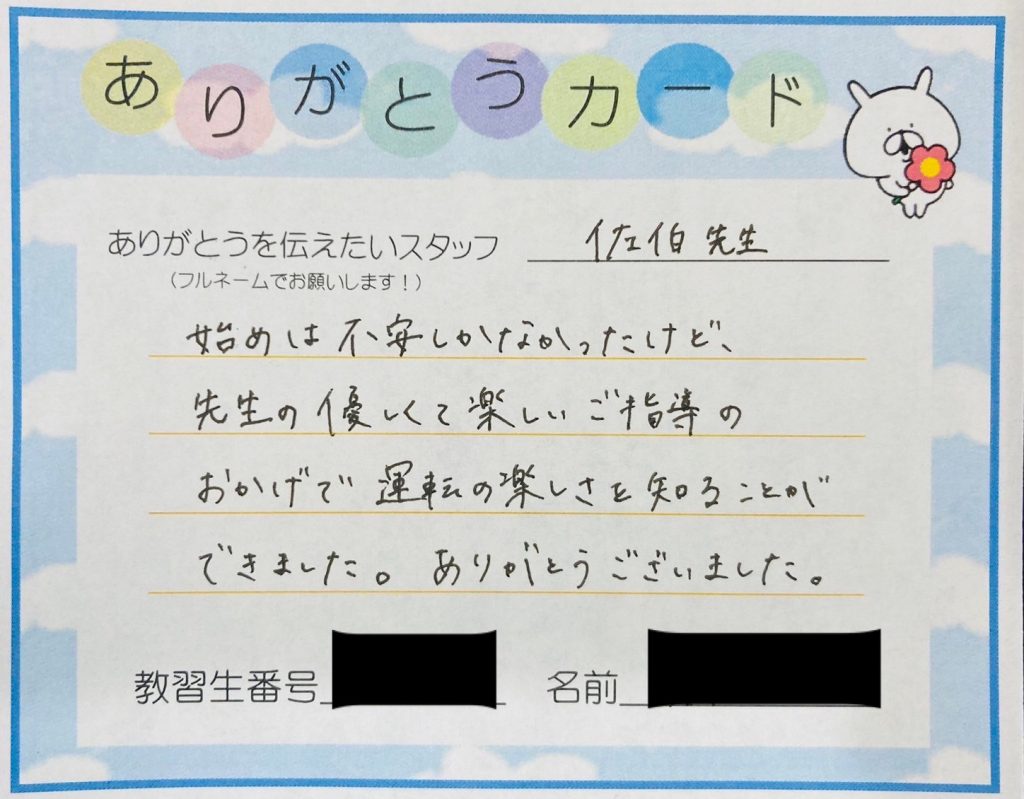 ありがとうカード
ありがとうを伝えたいスタッフ 佐伯先生
(フルネームでお願いします!)
始めは不安しかなかったけど、
先生の優しくて楽しいご指導の
おかげで運転の楽しさを知ることが
できました。ありがとうございました。
教習生番号 名前